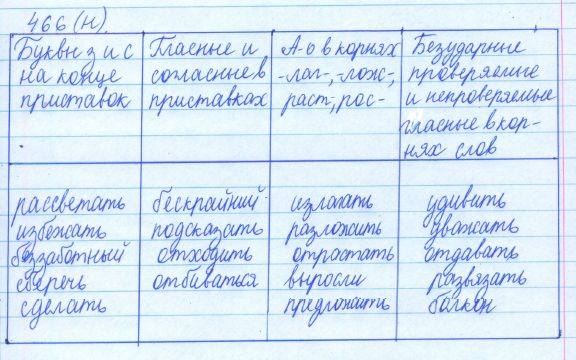 466(н).
Буквы з и с
на конце
приставок
Гласные и
согласные в
приставках
А-о в корнях
-лаг-, -лож-,
раст-, рос-
Безударные
проверяемые
и непроверяемые
гласные в кор-
нях слов
рассветать
избежать
беззаботный
сберечь
сделать
бескрайний
подсказать
отходить
отбиваться
излагать
разложить
отрастать
выросли
предложить
удивить
уважать
отдавать
развязать
балкон